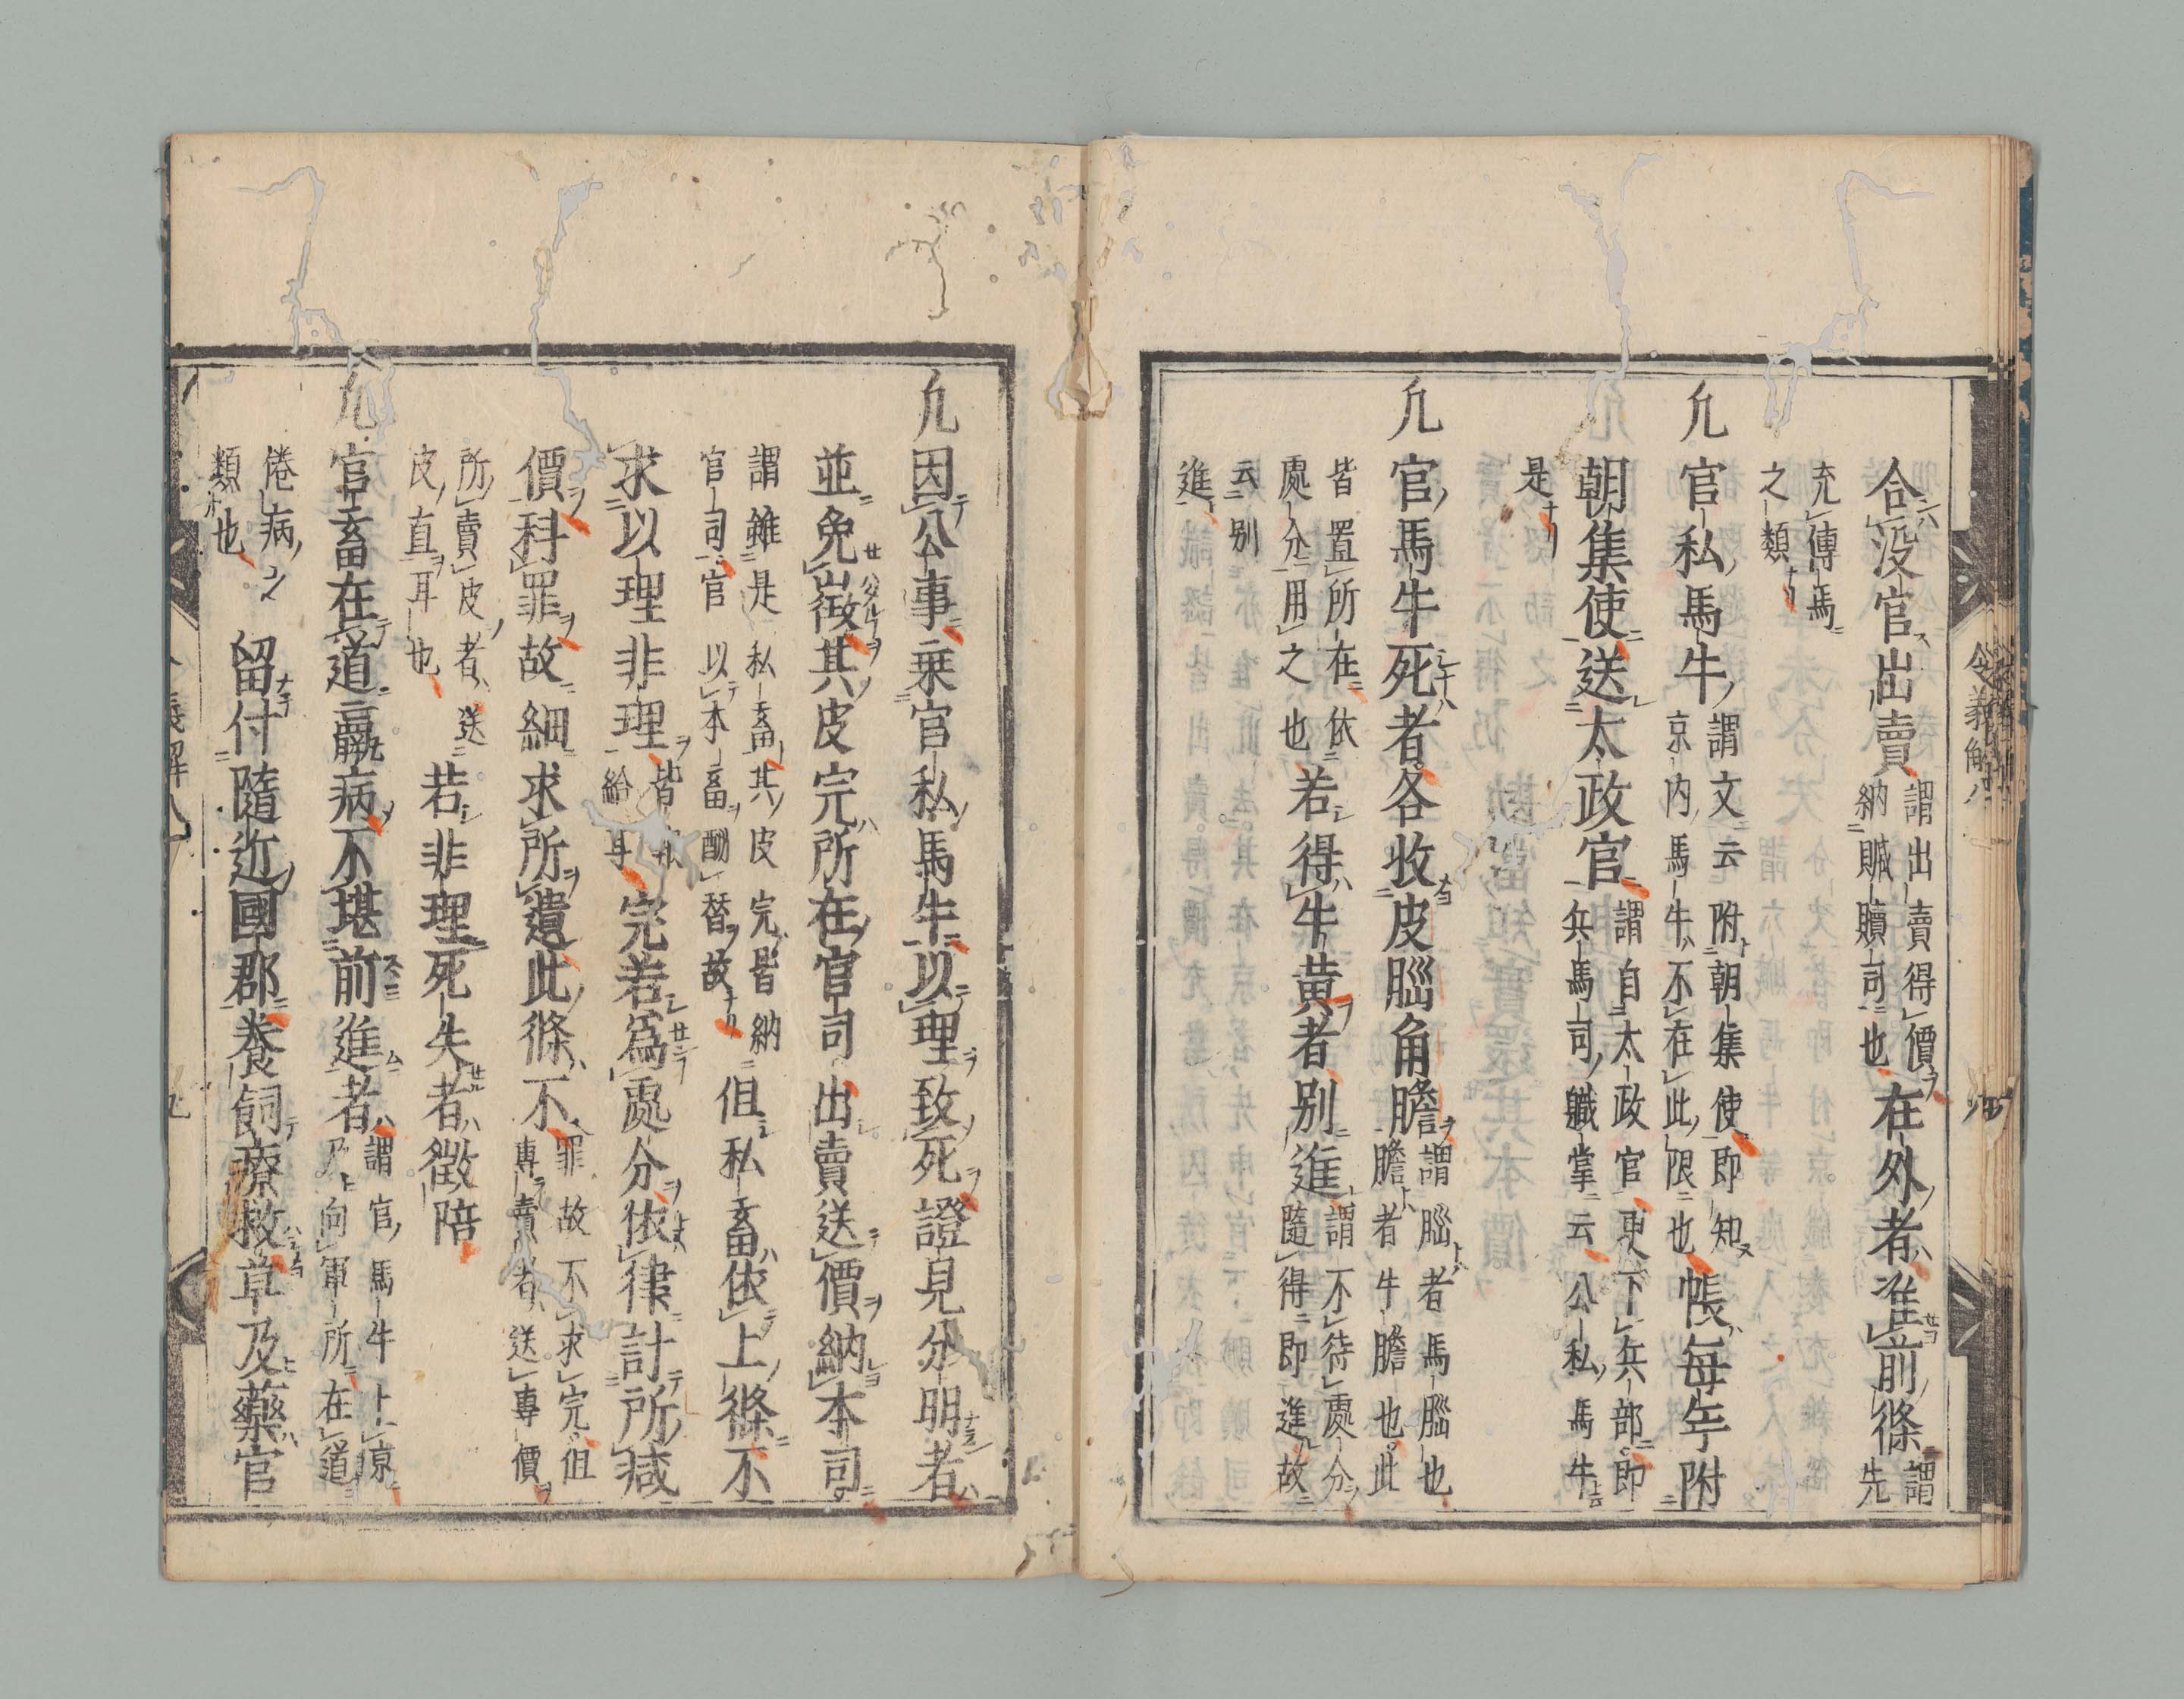 合没官出賣謂出賣得價納贓贖司也在外者准前條謂先
充傳馬之類
凢官私馬牛謂文云附朝集使即知京内馬牛不在此限也帳毎年附
朝集使送太政官謂自太政官更下兵部即兵馬司職掌云公私馬牛
是
凢官馬牛死者各收皮脳角膽謂脳者馬脳也膽者牛膽也此
皆置所在依處分用之也若得牛黄者別進謂不待處分隨得即進故
云別進
令義解八
凢因公事乗官私馬牛以理致死證見分明者
並免徴其皮完所在官司出賣送價納本司
謂雖是私畜其皮完皆納官司官以本畜酬替故但私畜依上條不
求以理非理皆給耳完若為處分依律計所減
價科罪故細求所遺此條不罪故不求完但專賣者送專價
所賣皮者送皮直耳也若非理死失者徴陪
凢官畜在道羸病不堪前進者謂官馬牛上京及向軍所在道
倦病之類也留付隨近國郡養飼療救草及藥官